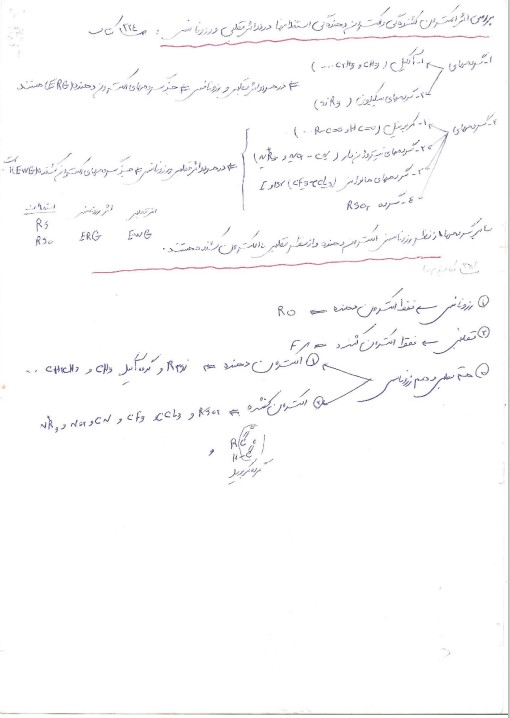 بررسی اثر الکترون کشندگی و الکترون دهندگی استخلافها در دو اثر القایی و رزونانسی: صفحه ۲۲۴ کتاب
۱- گروههای
۱- آلکیل (CH3 و CH2CH3 ...)
۲- گروههای سیلیکون (SiR3)
# در هر دو اثر القایی و رزونانسی # جزء گروههای الکترون دهنده (ERG) هستند
۲- گروههای
۱- کربونیل (RCO و HCO ...)
۲- گروههای نیتروژن دار (NR3 و NO2 - CN)
۳- گروههای هالوژنی (CF3 و CCl3)
۴- گروه RSO2
# در هر دو اثر القایی و رزونانسی # جزء گروههای الکترون کشنده (EWG) است
استخلاف اثر رزونانسی اثر القایی
RS
RSO ERG EWG
سایر گروهها از نظر رزونانسی الکترون دهنده و از نظر القایی الکترون کشنده هستند.
① رزونانسی ← فقط الکترون دهنده ⇐ RO
② القایی ← فقط الکترون کشنده ⇐
③ هم القایی و هم رزونانسی
① الکترون دهنده ⇐ R3Si و گروه آلکیل CH3 و CH2CH3 ...
② الکترون کشنده ⇐ RSO2 و CCl3 و CF3 و CN و NO2 و NR3
و
R C O
H C O
گروه کربونیل